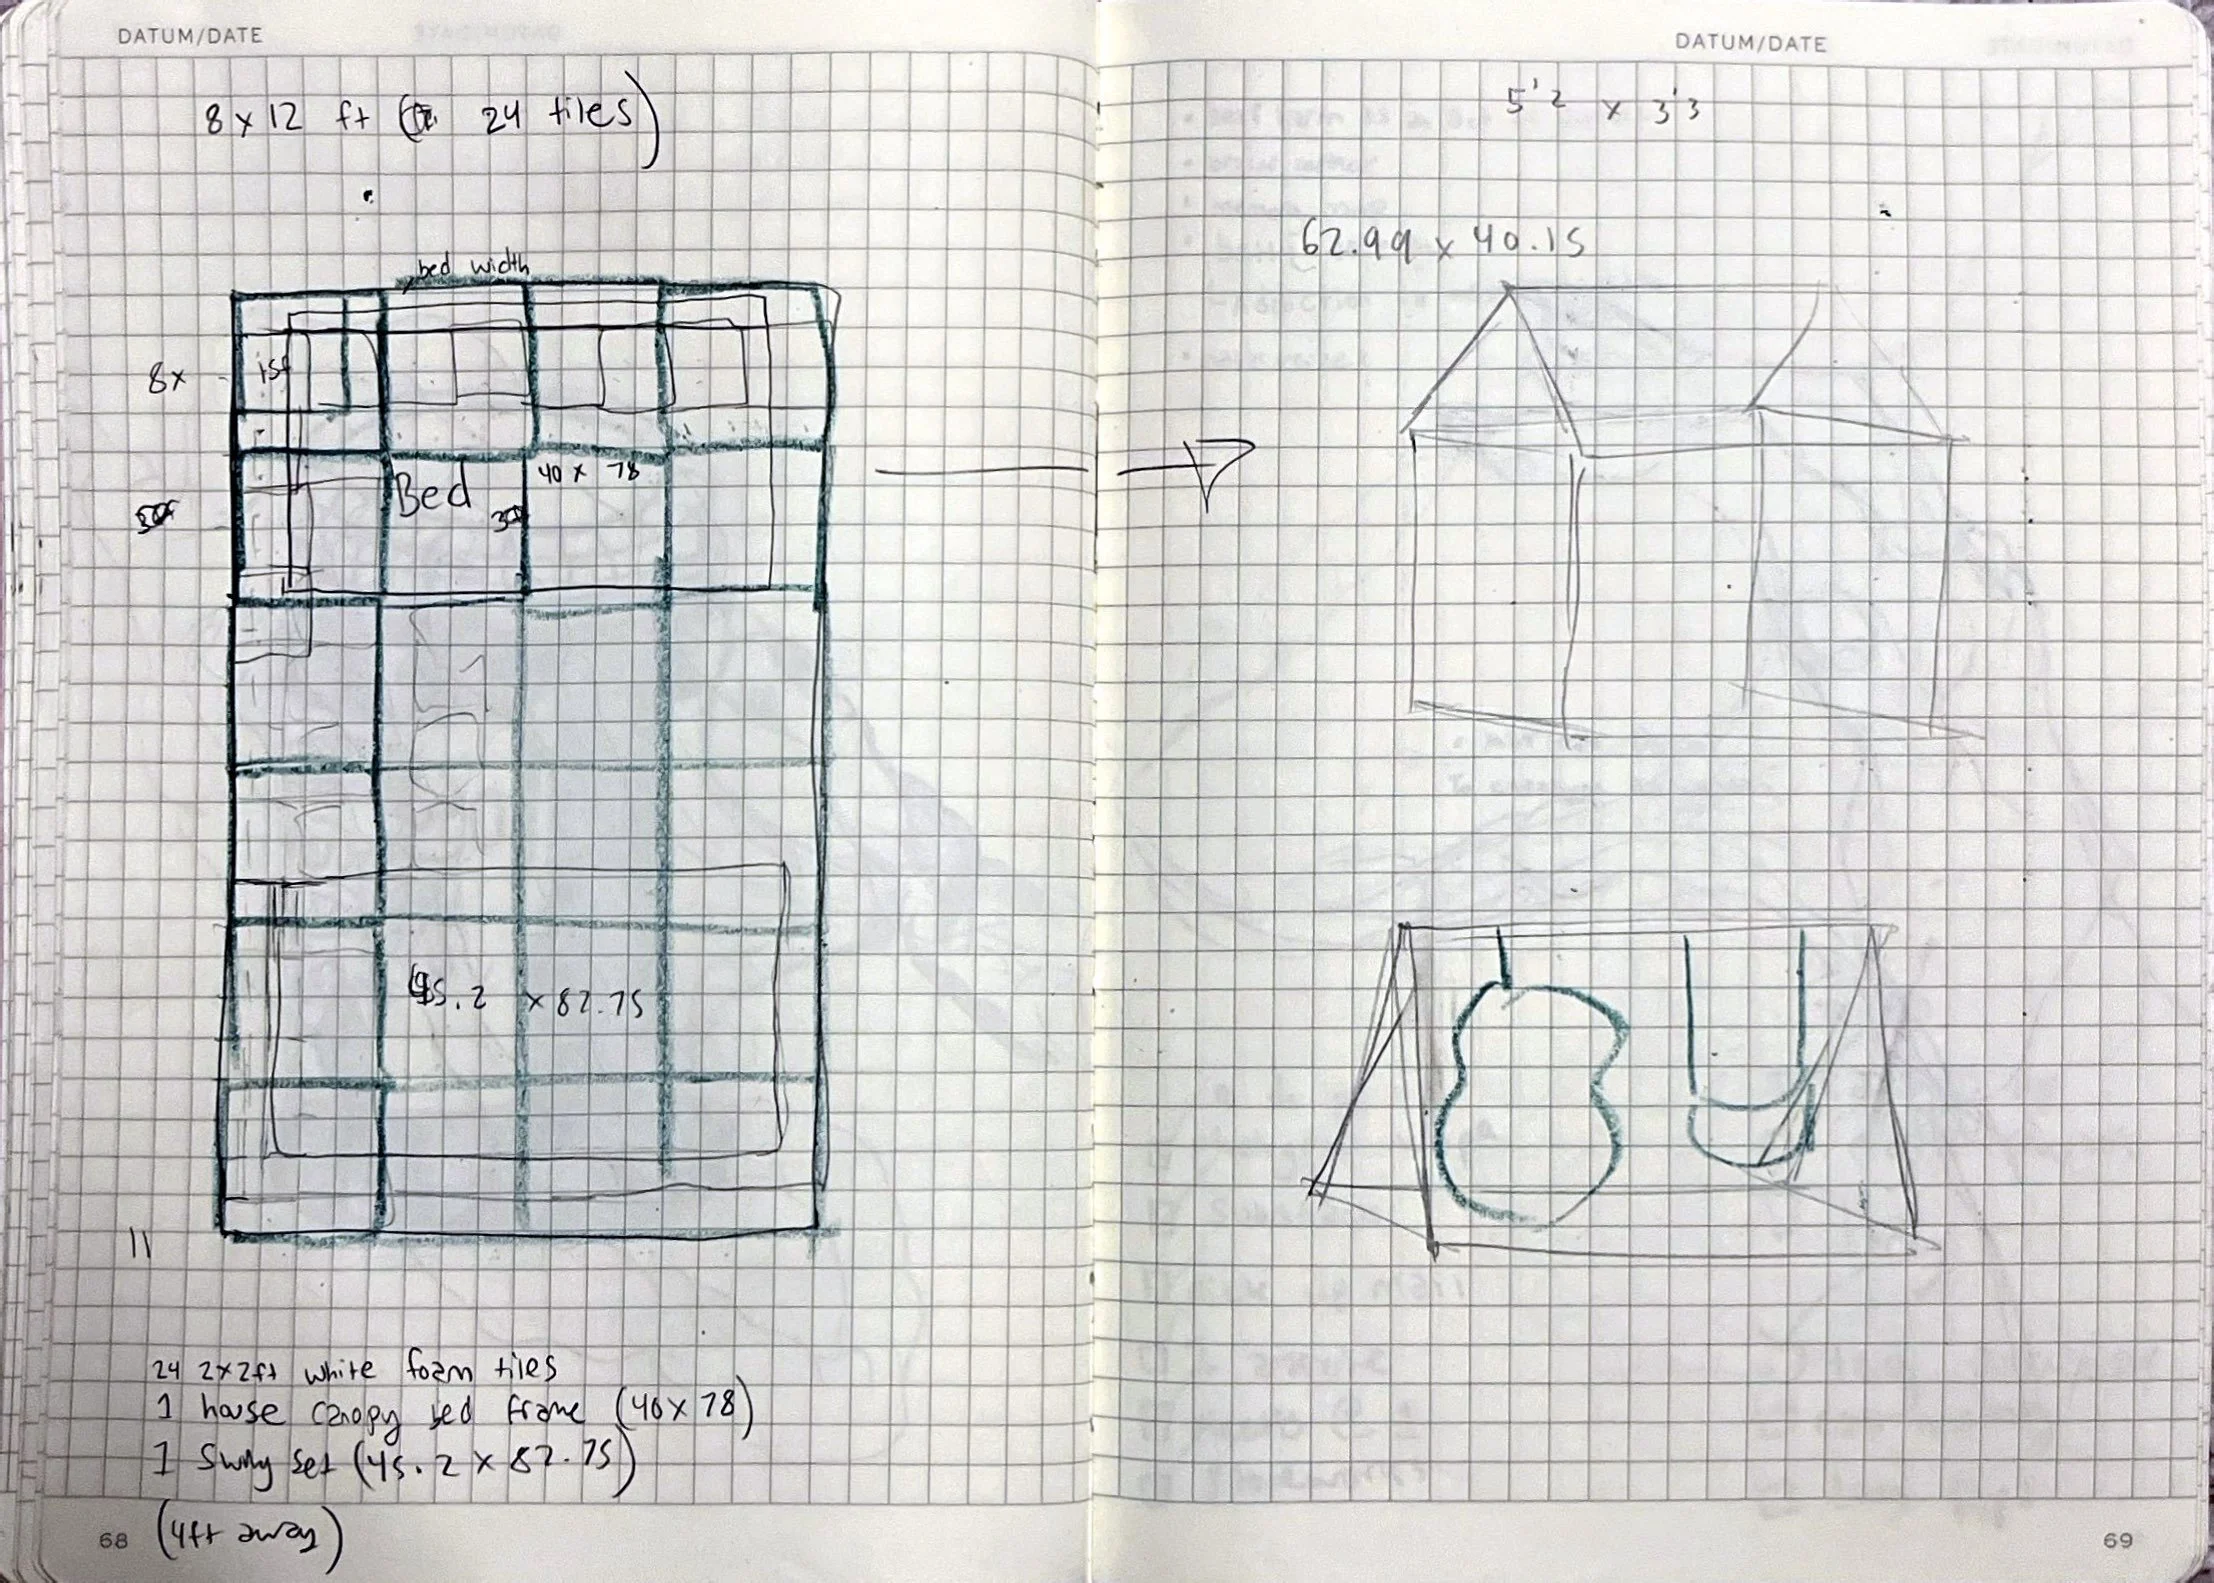 DATUM/DATE
8 x 12 ft ( 24 tiles)
bed width
8x
1sf
Bed
40 x 78
45.2 x 82.75
11
24 2x2ft white foam tiles
1 house canopy bed frame (40x78)
1 Swing Set (45.2 x 82.75)
(4ft away)
68
DATUM/DATE
5'2 x 3'3
62.99 x 40.15
69